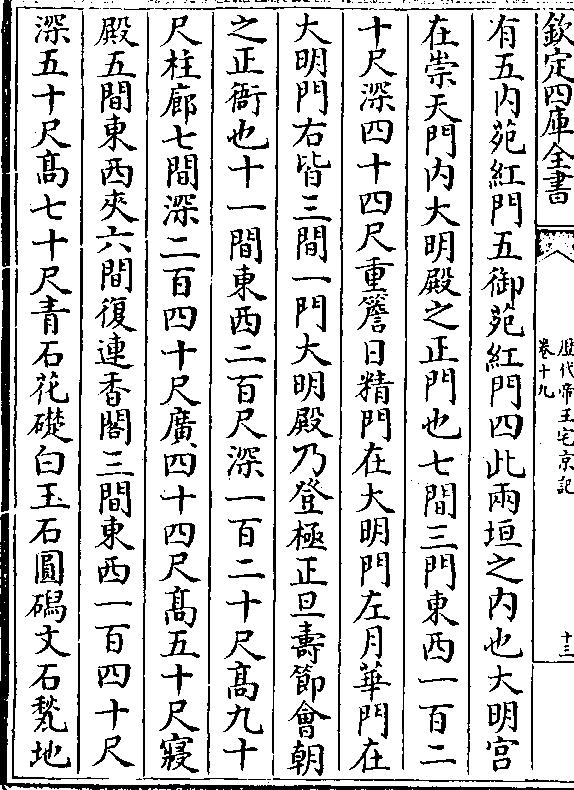 欽定四庫全書
歴代帝王宅京記
卷十九
十三
有五内苑紅門五御苑紅門四此兩垣之内也大明宫
在崇天門内大明殿之正門也七間三門東西一百二
十尺深四十四尺重簷日精門在大明門左月華門在
大明門右皆三間一門大明殿乃登極正旦壽節會朝
之正衙也十一間東西二百尺深一百二十尺髙九十
尺柱廊七間深二百四十尺廣四十四尺髙五十尺寝
殿五間東西夾六間復連香閣三間東西一百四十尺
深五十尺髙七十尺青石花礎白玉石圓磶文石甃地